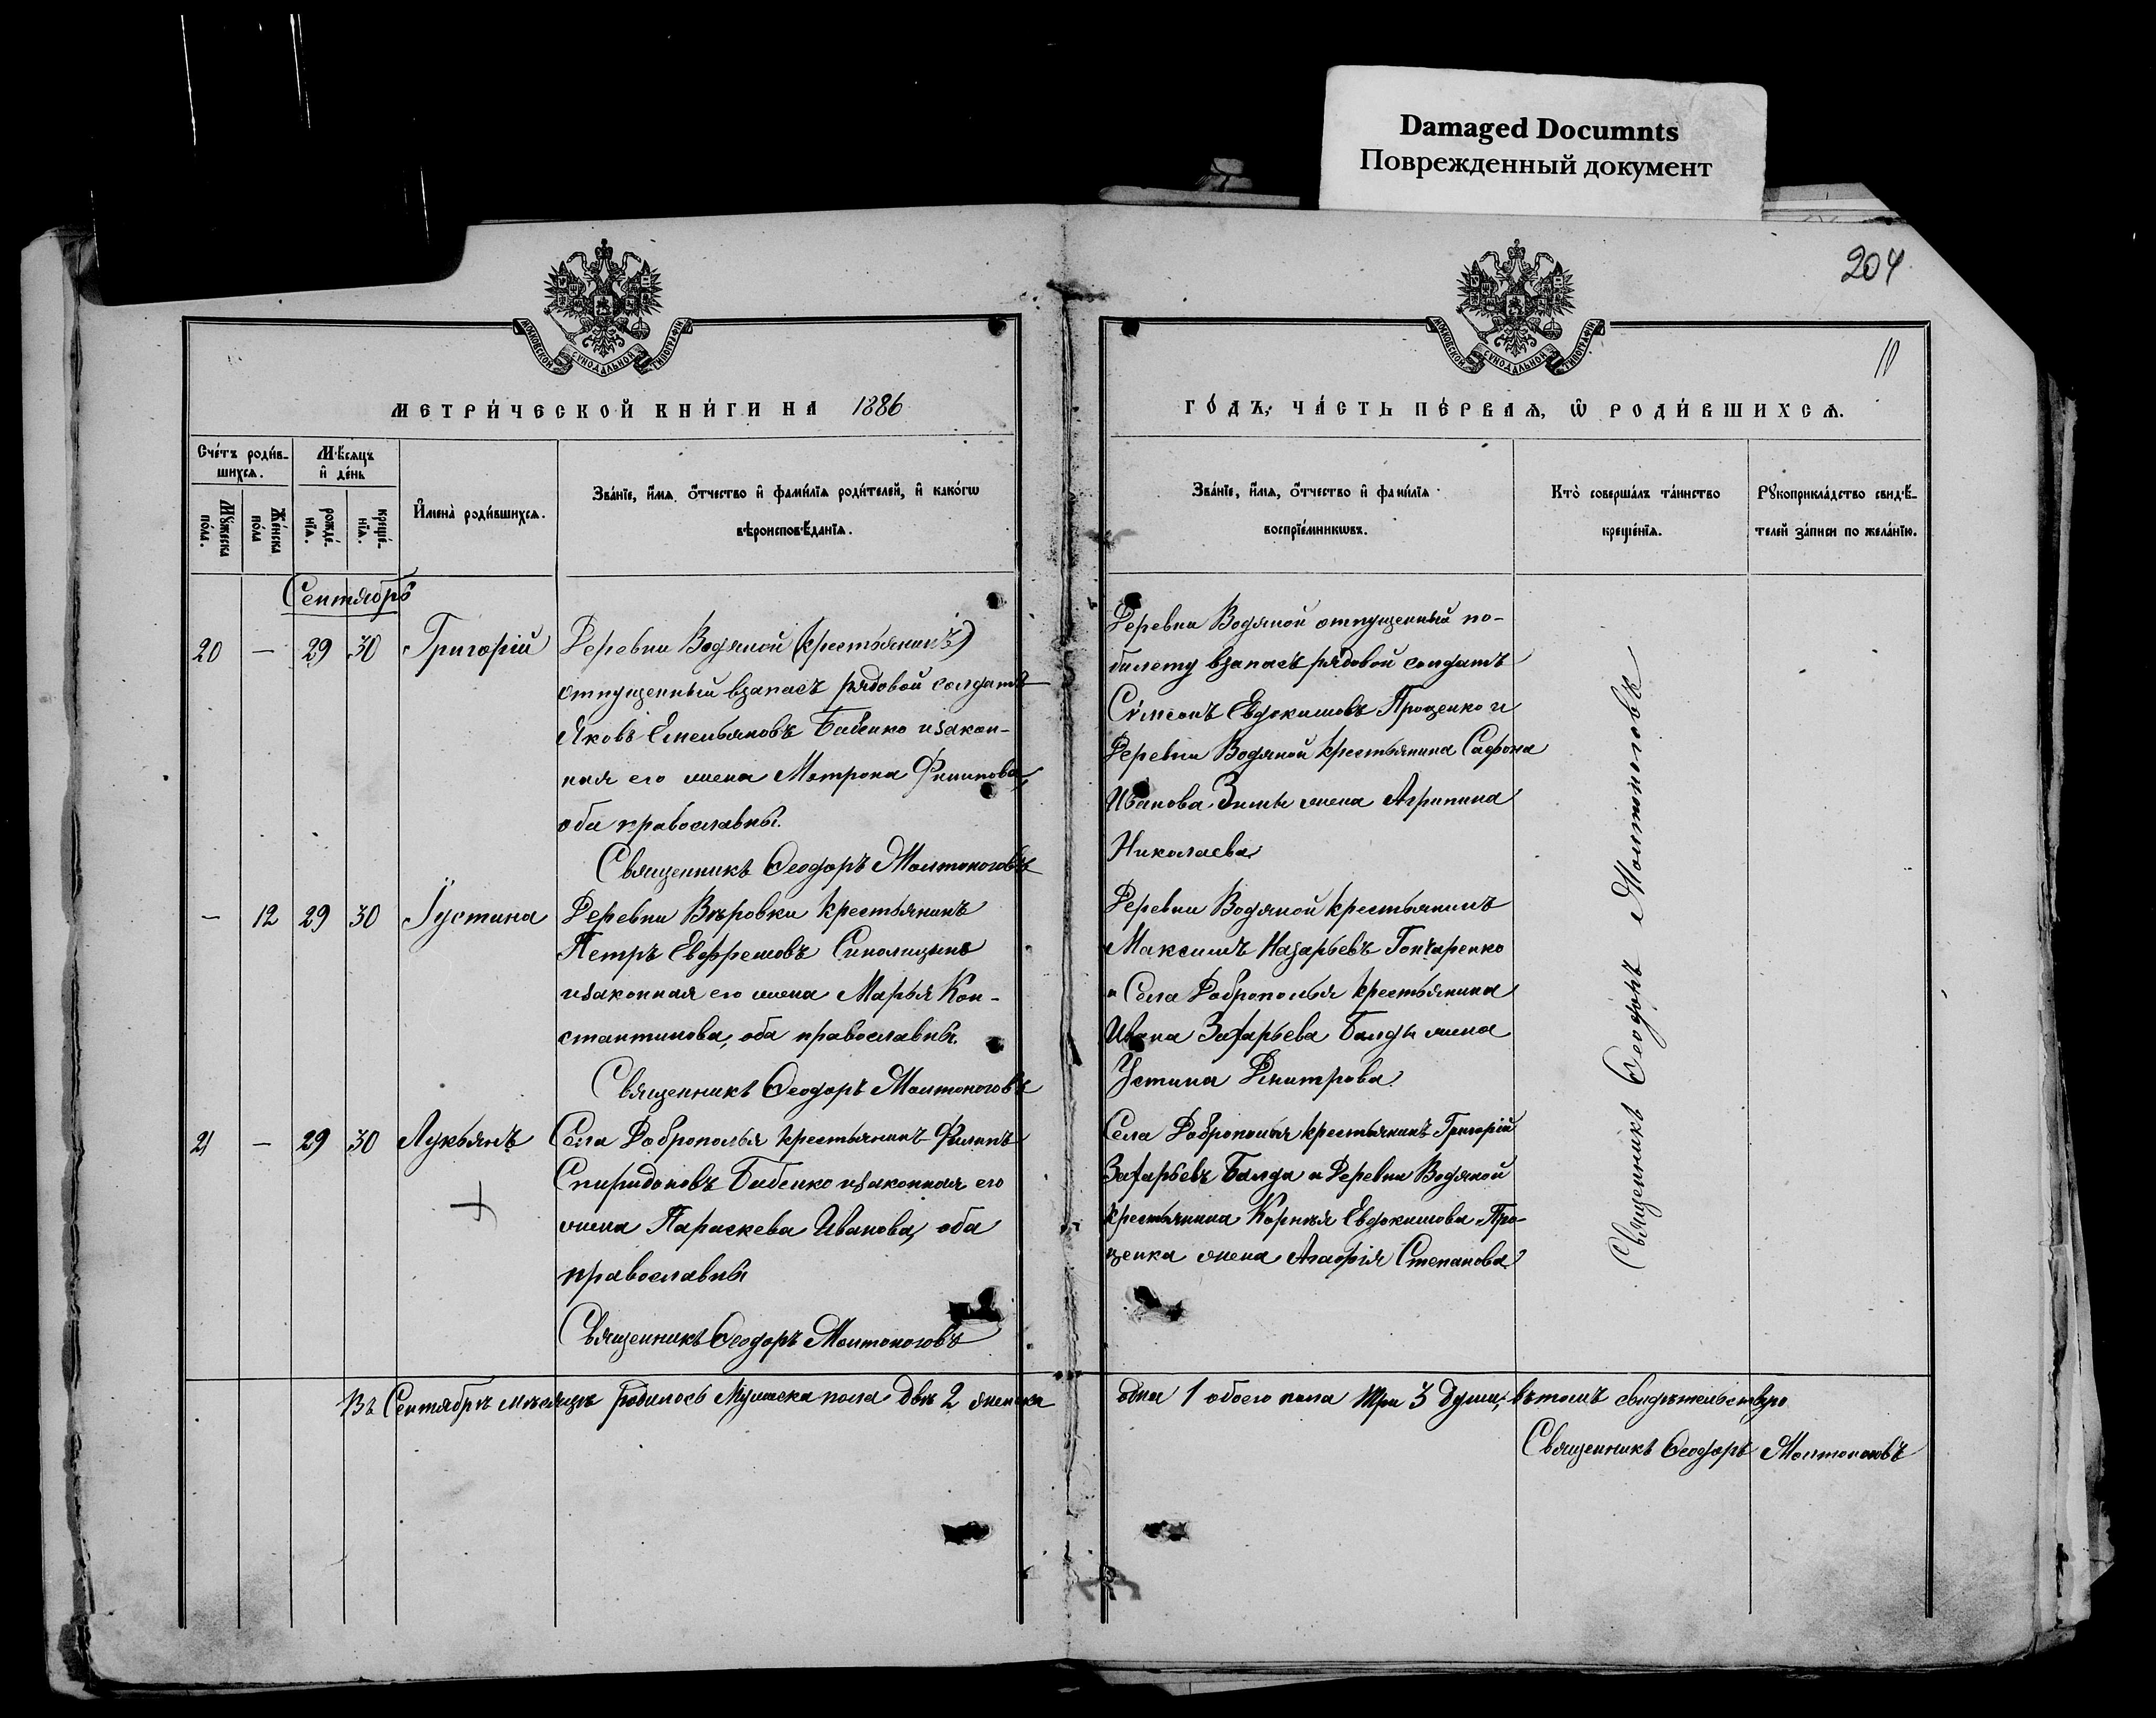 Damaged Documnts
Поврежденный документ
204
11
МОСКОВСКОЙ СѴНОДАЛЬНОЙ ТИПОГРАФІИ
МОСКОВСКОЙ СѴНОДАЛЬНОЙ ТИПОГРАФІИ
МЕТРИ́ЧЕСКОЙ КНИ́ГИ НА 1886
ГО́ДЪ, ЧА́СТЬ ПЕ́РВАѦ, Ѡ҆ РОДИ́ВШИХСѦ.
Сче́тъ роди́в-
шихсѧ.
Мѹ́жеска по́ла.
Же́нска по́ла
Мѣ́сяцъ
и҆ де́нь
рожде́-нїѧ.
креще́-нїѧ.
И҆мена̀ роди́вшихсѧ.
Зва́нїе, и҆́мѧ, ѻ҆́тчество и҆ фами́лїѧ роди́телей, и҆ како́гѡ
вѣроисповѣ́данїѧ.
Зва́нїе, и҆́мѧ, ѻ҆́тчество и҆ фами́лїѧ
воспрїе́мникѡвъ.
Кто̀ соверша́лъ та́инство
креще́нїѧ.
Рꙋкоприкла́дство свидѣ́-
телей за́писи по жела́нїю.
Сентябрь
20 — 29 30 Григорій
Деревни Водяной (крестьянинъ)
отпущенный взапасъ рядовой солдатъ
Яковъ Емельяновъ Бабенко изакон-
ная его жена Матрона Филипова,
оба православны.
Священникъ Ѳеодоръ Молтоноговъ
Деревни Водяной отпущенный по-
билету взапасъ рядовой солдатъ
Сѵмеонъ Евдокимовъ Проценко и
Деревни Водяной крестьянина Сафона
Иванова Зимы жена Агрипина
Николаева
— 12 29 30 Іустина
Деревни Вѣровки крестьянинъ
Петръ Евфремовъ Синолицынъ
изаконная его жена Марья Кон-
стантинова, оба православны.
Священникъ Ѳеодоръ Молтоноговъ
Деревни Водяной крестьянинъ
Максимъ Назарьевъ Гончаренко
и Села Доброполья крестьянина
Ивана Захарьева Балды жена
Устина Дмитрова
21 — 29 30 Лукьянъ
Села Доброполья крестьянинъ Филипъ
Спиридоновъ Бабенко изаконная его
жена Параскева Иванова, оба
православны
Священникъ Ѳеодоръ Молтоноговъ
Села Доброполья крестьянинъ Григорій
Захарьевъ Балда и Деревни Водяной
крестьянина Корнѣя Евдокимова Про-
ценка жена Агафія Степанова
Священникъ Ѳеодоръ Молтоноговъ
Въ Сентябрѣ мѣсяцѣ родилось Мужеска пола двѣ 2 женска одна 1 обоего пола три 3 души; вътомъ свидѣтельствую
Священникъ Ѳеодоръ Молтоноговъ